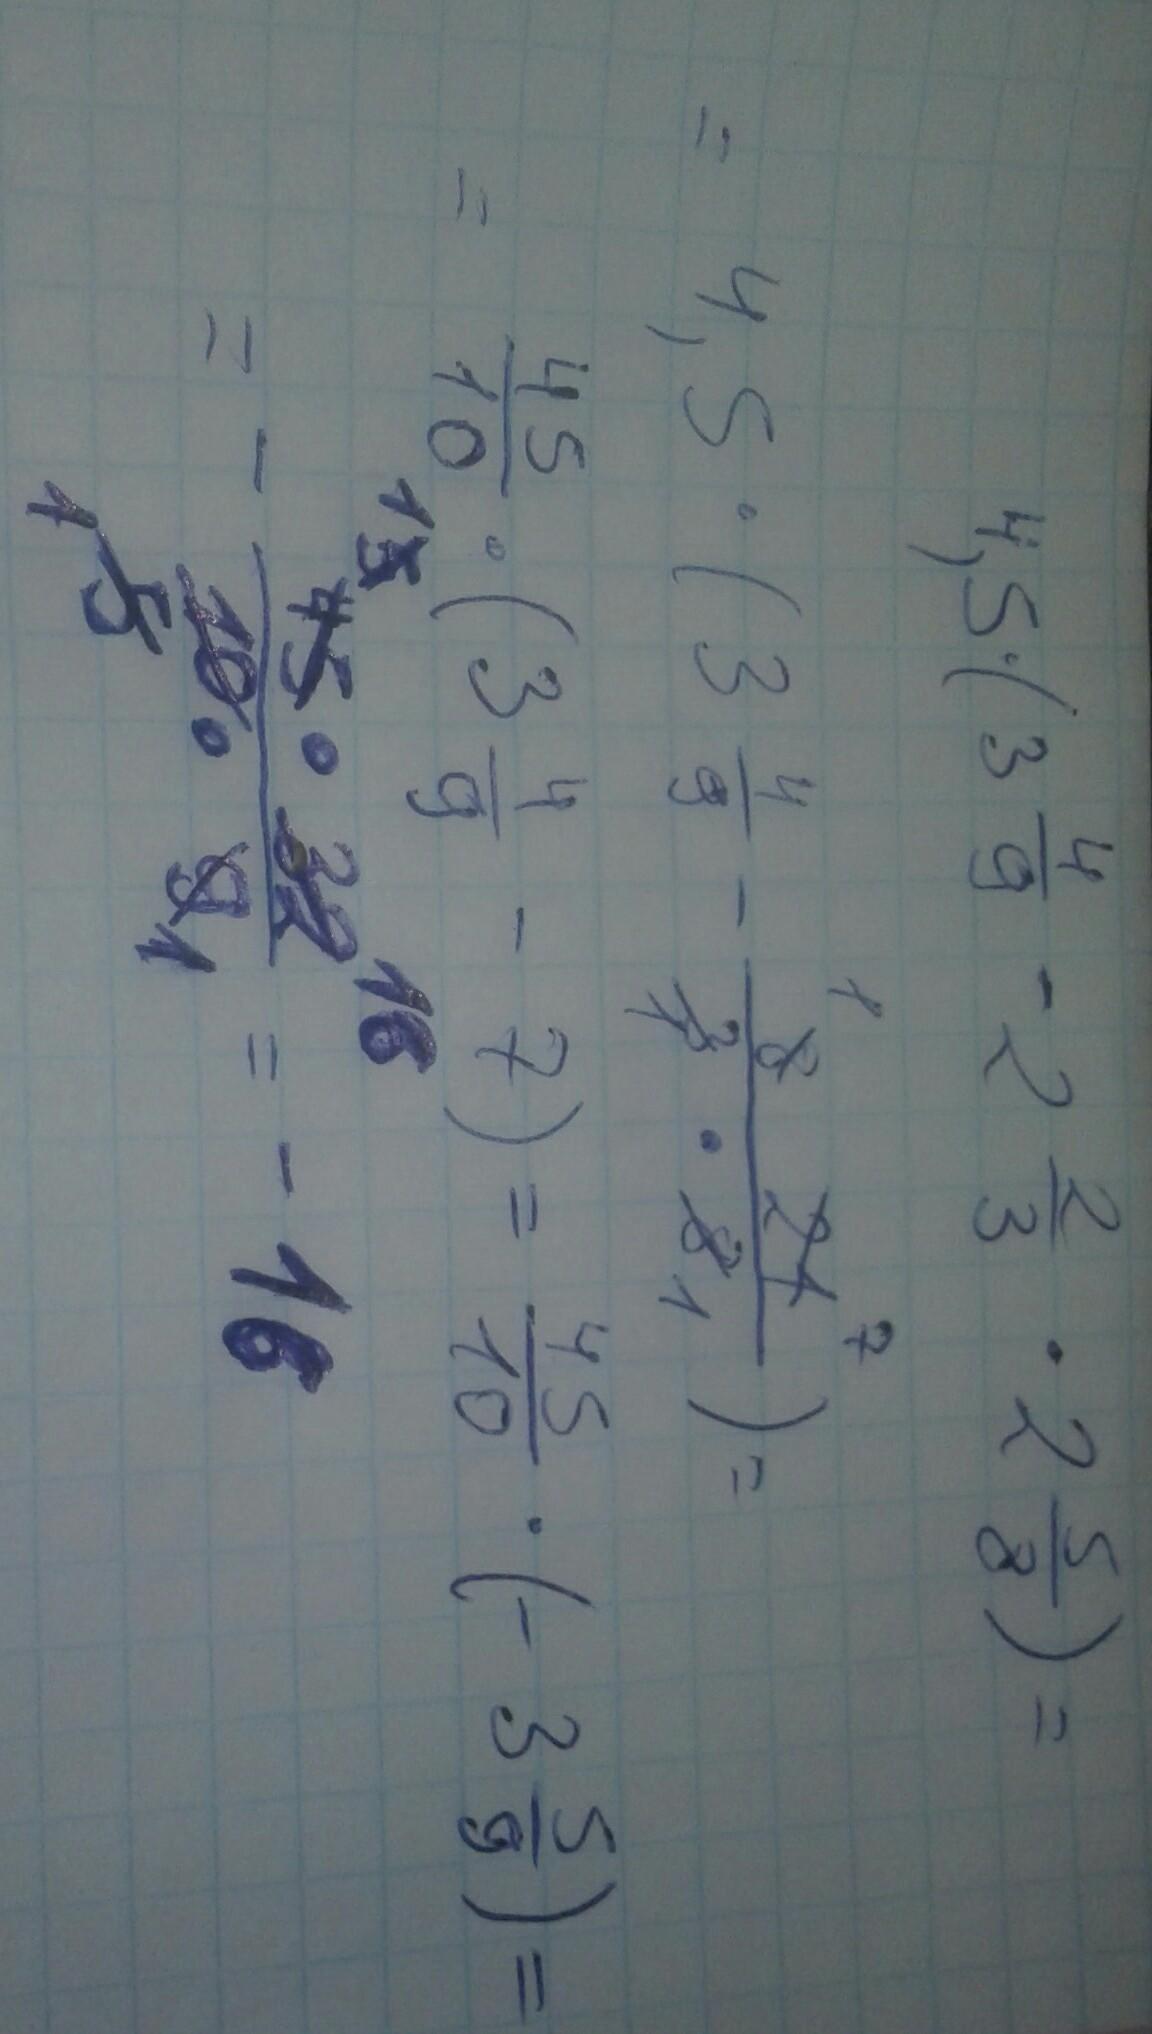 4,5·(3 4/9 - 2 2/3 · 2 5/8) =
= 4,5 · (3 4/9 - 8 · 21 / 3 · 8) =
1 7
1 1
= 45/10 · (3 4/9 - 7) = 45/10 · (- 3 5/9) =
= - 45 · 32 / 10 · 9 = - 16
16
5 1
1